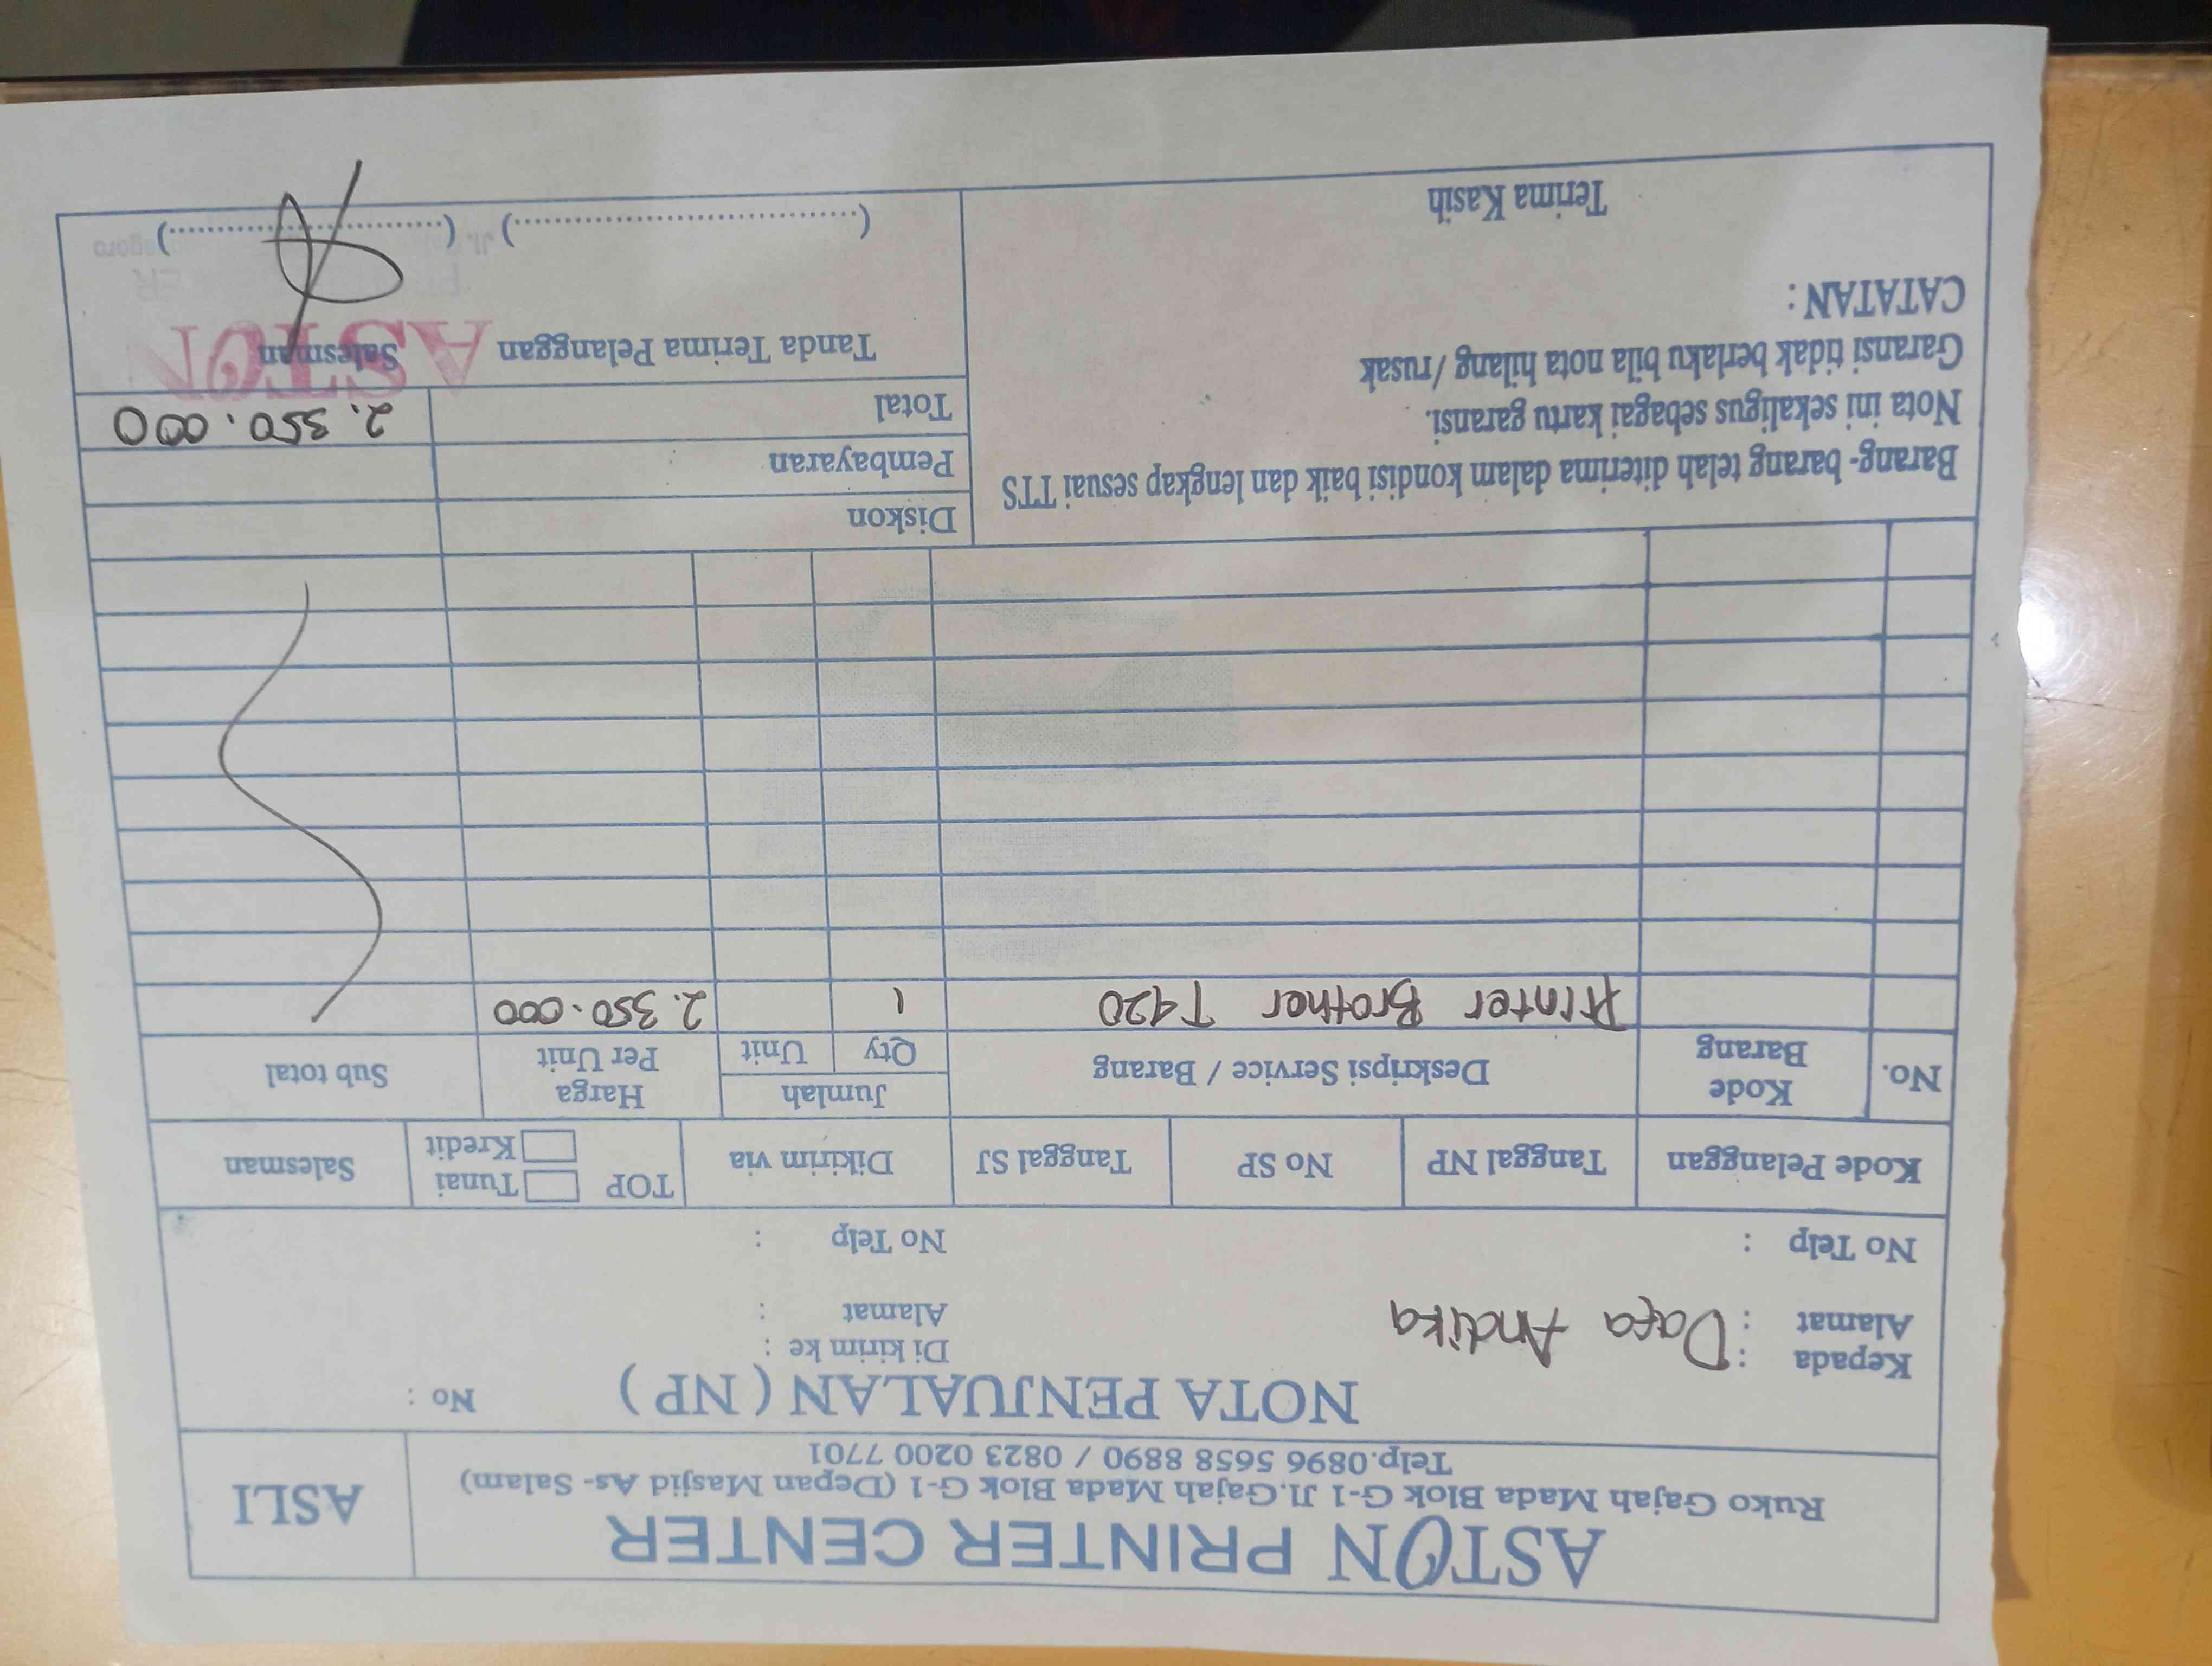 ASTON PRINTER CENTER
Ruko Gajah Mada Blok G-1 Jl.Gajah Mada Blok G-1 (Depan Masjid As- Salam)
Telp.0896 5658 8890 / 0823 0200 7701
ASLI
NOTA PENJUALAN ( NP )
No :
Kepada : Dafa Andika
Alamat :
No Telp :
Di kirim ke :
Alamat :
No Telp :
Kode Pelanggan
Tanggal NP
No SP
Tanggal SJ
Dikirim via
TOP
Tunai
Kredit
Salesman
No.
Kode Barang
Deskripsi Service / Barang
Jumlah
Qty
Unit
Harga
Per Unit
Sub total
Printer Brother T420 1 2.350.000
Barang- barang telah diterima dalam kondisi baik dan lengkap sesuai TTS
Nota ini sekaligus sebagai kartu garansi.
Garansi tidak berlaku bila nota hilang /rusak
CATATAN :
Terima Kasih
Diskon
Pembayaran
Total 2.350.000
Tanda Terima Pelanggan
Salesman
ASTON